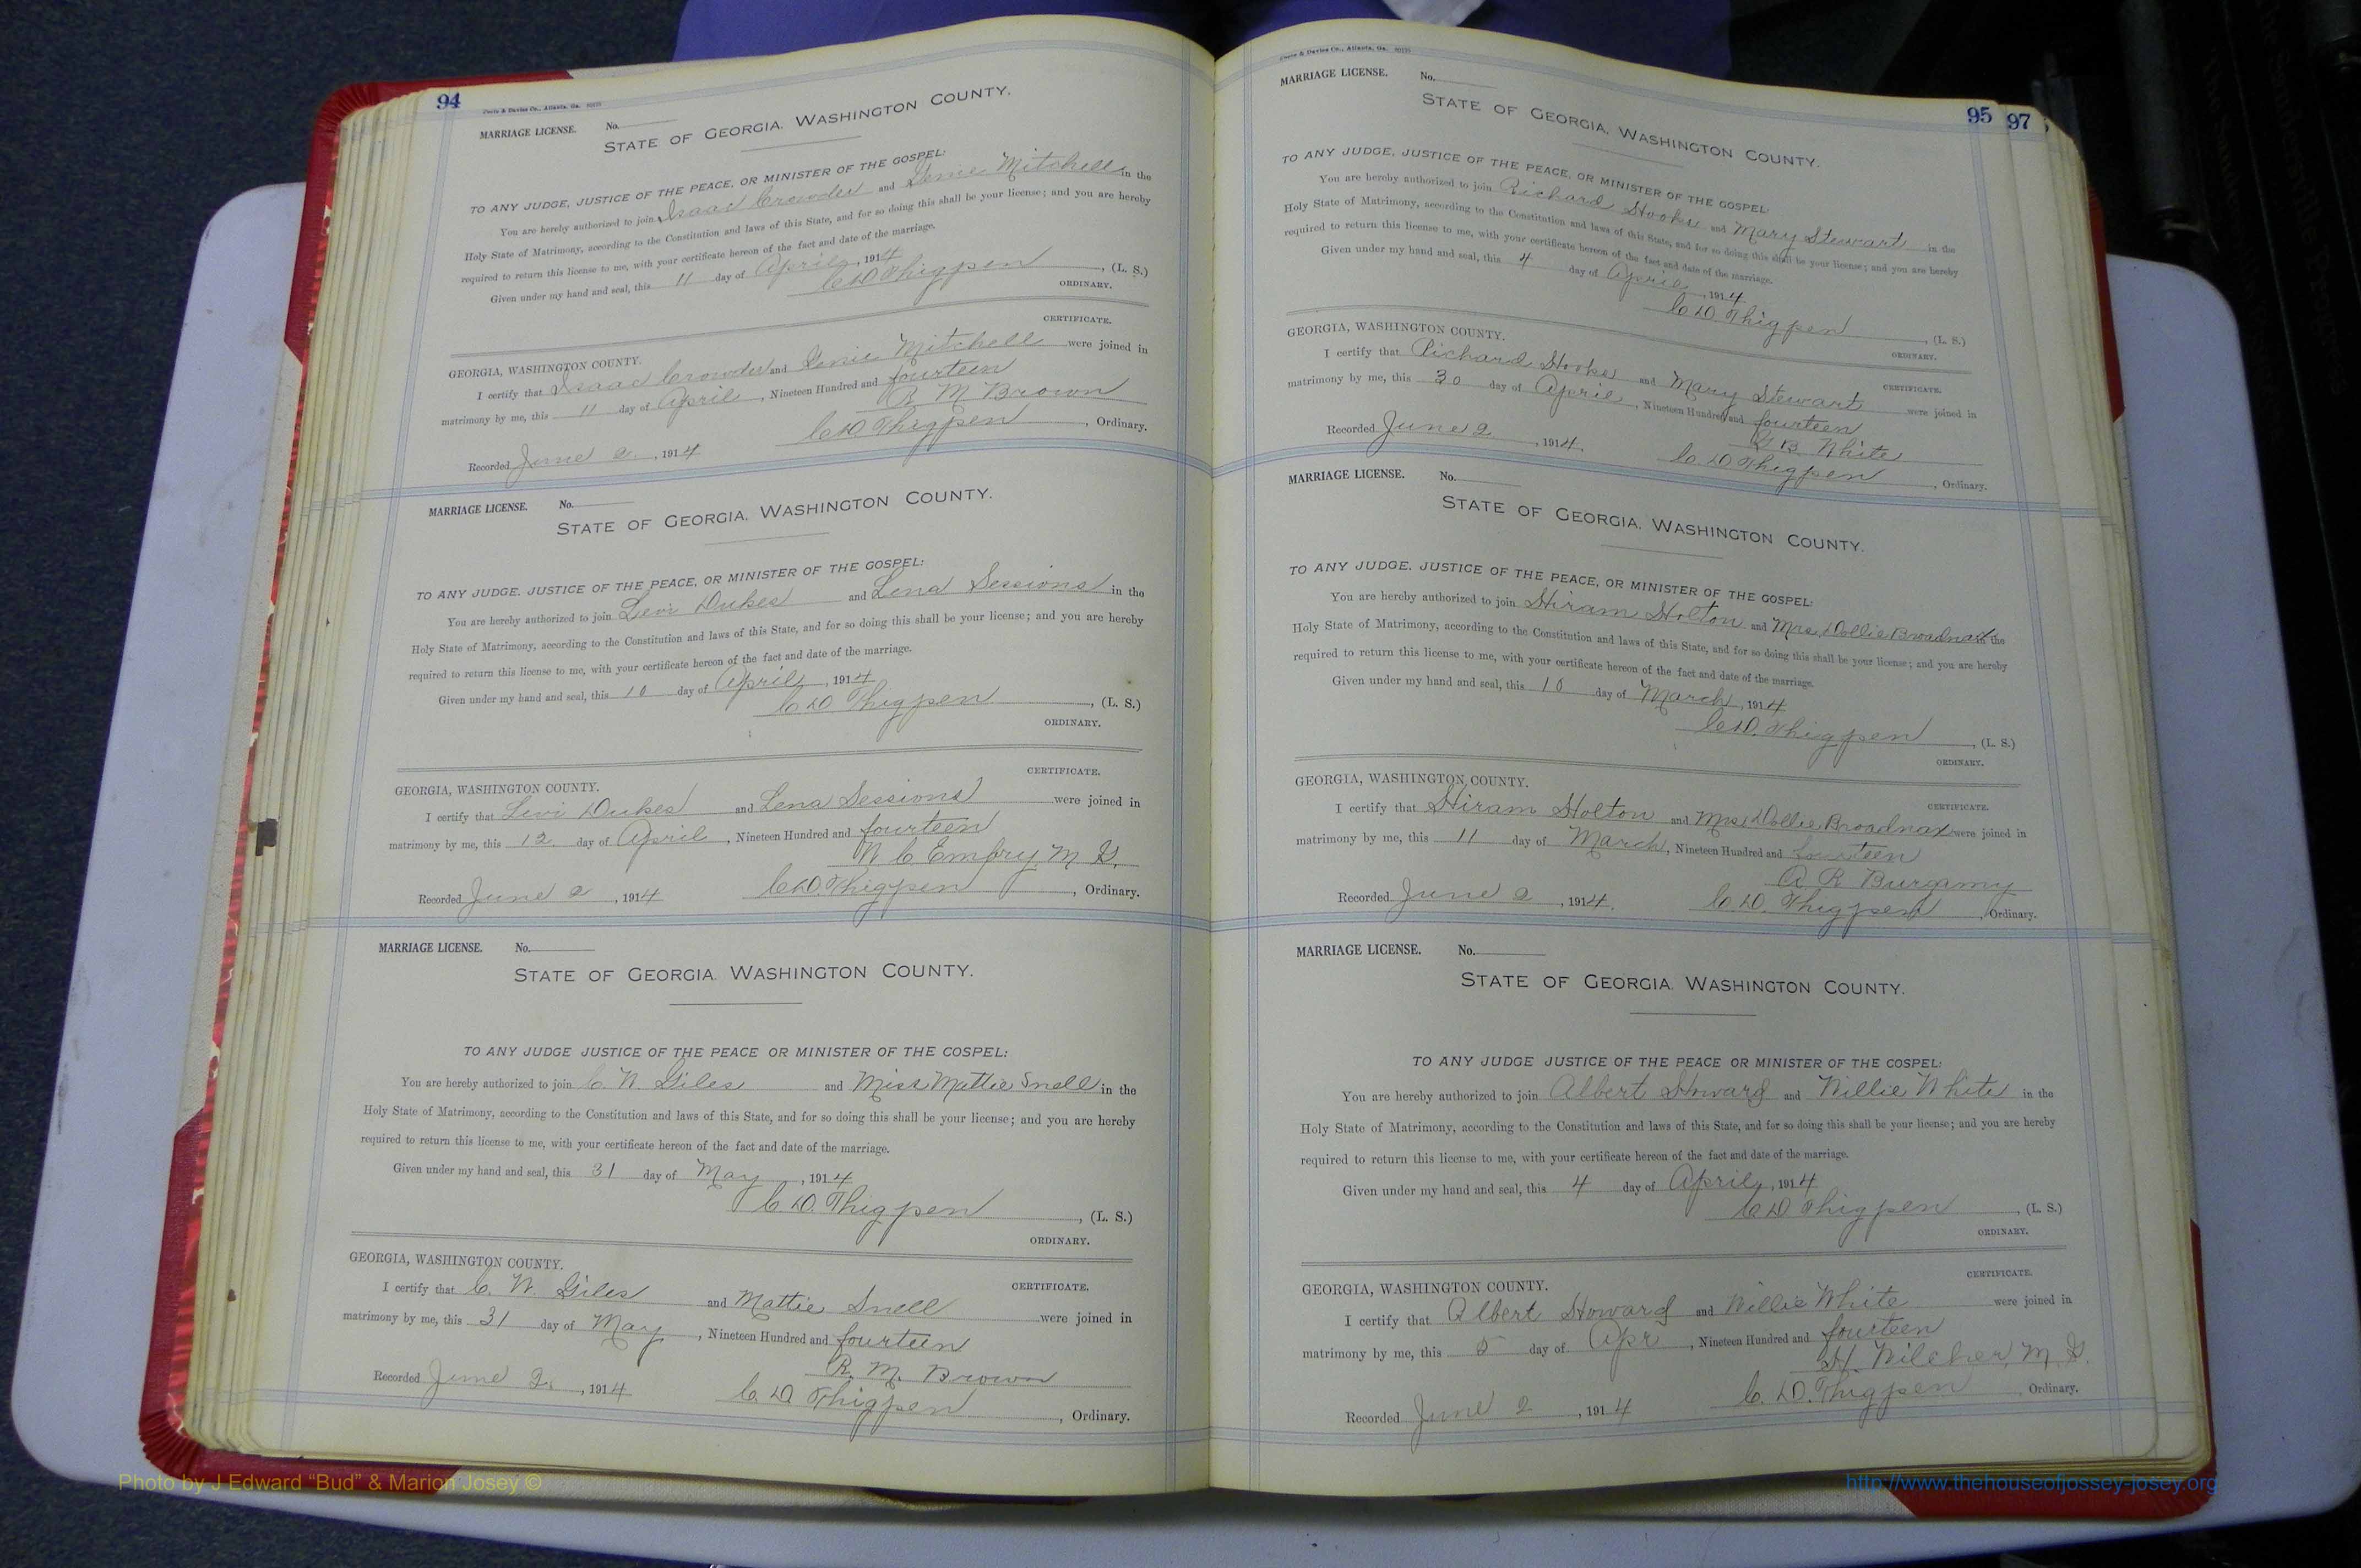 94
MARRIAGE LICENSE. No.
STATE OF GEORGIA. WASHINGTON COUNTY.
TO ANY JUDGE, JUSTICE OF THE PEACE, OR MINISTER OF THE GOSPEL:
You are hereby authorized to join Isaac Crowder and Genie Mitchell in the
Holy State of Matrimony, according to the Constitution and laws of this State, and for so doing this shall be your license; and you are hereby
required to return this license to me, with your certificate hereon of the fact and date of the marriage.
Given under my hand and seal, this 11 day of April, 1914
C. D. Thigpen, (L. S.)
ORDINARY.
CERTIFICATE.
GEORGIA, WASHINGTON COUNTY.
I certify that Isaac Crowder and Genie Mitchell were joined in
matrimony by me, this 11 day of April, Nineteen Hundred and fourteen
R M Brown
Recorded June 2, 1914 C. D. Thigpen, Ordinary.
MARRIAGE LICENSE. No.
STATE OF GEORGIA. WASHINGTON COUNTY.
TO ANY JUDGE, JUSTICE OF THE PEACE, OR MINISTER OF THE GOSPEL:
You are hereby authorized to join Levi Dukes and Lena Sessions in the
Holy State of Matrimony, according to the Constitution and laws of this State, and for so doing this shall be your license; and you are hereby
required to return this license to me, with your certificate hereon of the fact and date of the marriage.
Given under my hand and seal, this 10 day of April, 1914
C. D. Thigpen, (L. S.)
ORDINARY.
CERTIFICATE.
GEORGIA, WASHINGTON COUNTY.
I certify that Levi Dukes and Lena Sessions were joined in
matrimony by me, this 12 day of April, Nineteen Hundred and fourteen
W. C Embry, M G.
Recorded June 2, 1914 C. D. Thigpen, Ordinary.
MARRIAGE LICENSE. No.
STATE OF GEORGIA. WASHINGTON COUNTY.
TO ANY JUDGE JUSTICE OF THE PEACE OR MINISTER OF THE GOSPEL:
You are hereby authorized to join C. W. Giles and Miss Mattie Snell in the
Holy State of Matrimony, according to the Constitution and laws of this State, and for so doing this shall be your license; and you are hereby
required to return this license to me, with your certificate hereon of the fact and date of the marriage.
Given under my hand and seal, this 31 day of May, 1914
C. D. Thigpen, (L. S.)
ORDINARY.
GEORGIA, WASHINGTON COUNTY.
CERTIFICATE.
I certify that C. W. Giles and Mattie Snell were joined in
matrimony by me, this 31 day of May, Nineteen Hundred and fourteen
R. M. Brown
Recorded June 2, 1914 C. D. Thigpen, Ordinary.
95 97
MARRIAGE LICENSE. No.
STATE OF GEORGIA. WASHINGTON COUNTY.
TO ANY JUDGE, JUSTICE OF THE PEACE, OR MINISTER OF THE GOSPEL:
You are hereby authorized to join Richard Hooks and Mary Stewart in the
Holy State of Matrimony, according to the Constitution and laws of this State, and for so doing this shall be your license; and you are hereby
required to return this license to me, with your certificate hereon of the fact and date of the marriage.
Given under my hand and seal, this 4 day of April, 1914
C. D. Thigpen, (L. S.)
ORDINARY.
GEORGIA, WASHINGTON COUNTY.
CERTIFICATE.
I certify that Richard Hooks and Mary Stewart were joined in
matrimony by me, this 30 day of April, Nineteen Hundred and fourteen
B. White
Recorded June 2, 1914. C. D. Thigpen, Ordinary.
MARRIAGE LICENSE. No.
STATE OF GEORGIA. WASHINGTON COUNTY.
TO ANY JUDGE, JUSTICE OF THE PEACE, OR MINISTER OF THE GOSPEL:
You are hereby authorized to join Hiram Holton and Mrs. Dollie Broadnax in the
Holy State of Matrimony, according to the Constitution and laws of this State, and for so doing this shall be your license; and you are hereby
required to return this license to me, with your certificate hereon of the fact and date of the marriage.
Given under my hand and seal, this 10 day of March, 1914
C. D. Thigpen, (L. S.)
ORDINARY.
GEORGIA, WASHINGTON COUNTY.
CERTIFICATE.
I certify that Hiram Holton and Mrs. Dollie Broadnax were joined in
matrimony by me, this 11 day of March, Nineteen Hundred and fourteen
A R Burgamy
Recorded June 2, 1914. C. D. Thigpen, Ordinary.
MARRIAGE LICENSE. No.
STATE OF GEORGIA. WASHINGTON COUNTY.
TO ANY JUDGE JUSTICE OF THE PEACE OR MINISTER OF THE GOSPEL:
You are hereby authorized to join Albert Howard and Willie White in the
Holy State of Matrimony, according to the Constitution and laws of this State, and for so doing this shall be your license; and you are hereby
required to return this license to me, with your certificate hereon of the fact and date of the marriage.
Given under my hand and seal, this 4 day of April, 1914
C. D. Thigpen, (L. S.)
ORDINARY.
CERTIFICATE.
GEORGIA, WASHINGTON COUNTY.
I certify that Albert Howard and Willie White were joined in
matrimony by me, this 5 day of Apr, Nineteen Hundred and fourteen
H. Wilcher, M. G.
Recorded June 2, 1914 C. D. Thigpen Ordinary.
Photo by J Edward "Bud" & Marion Josey ©
http://www.thehouseofjossey-josey.org